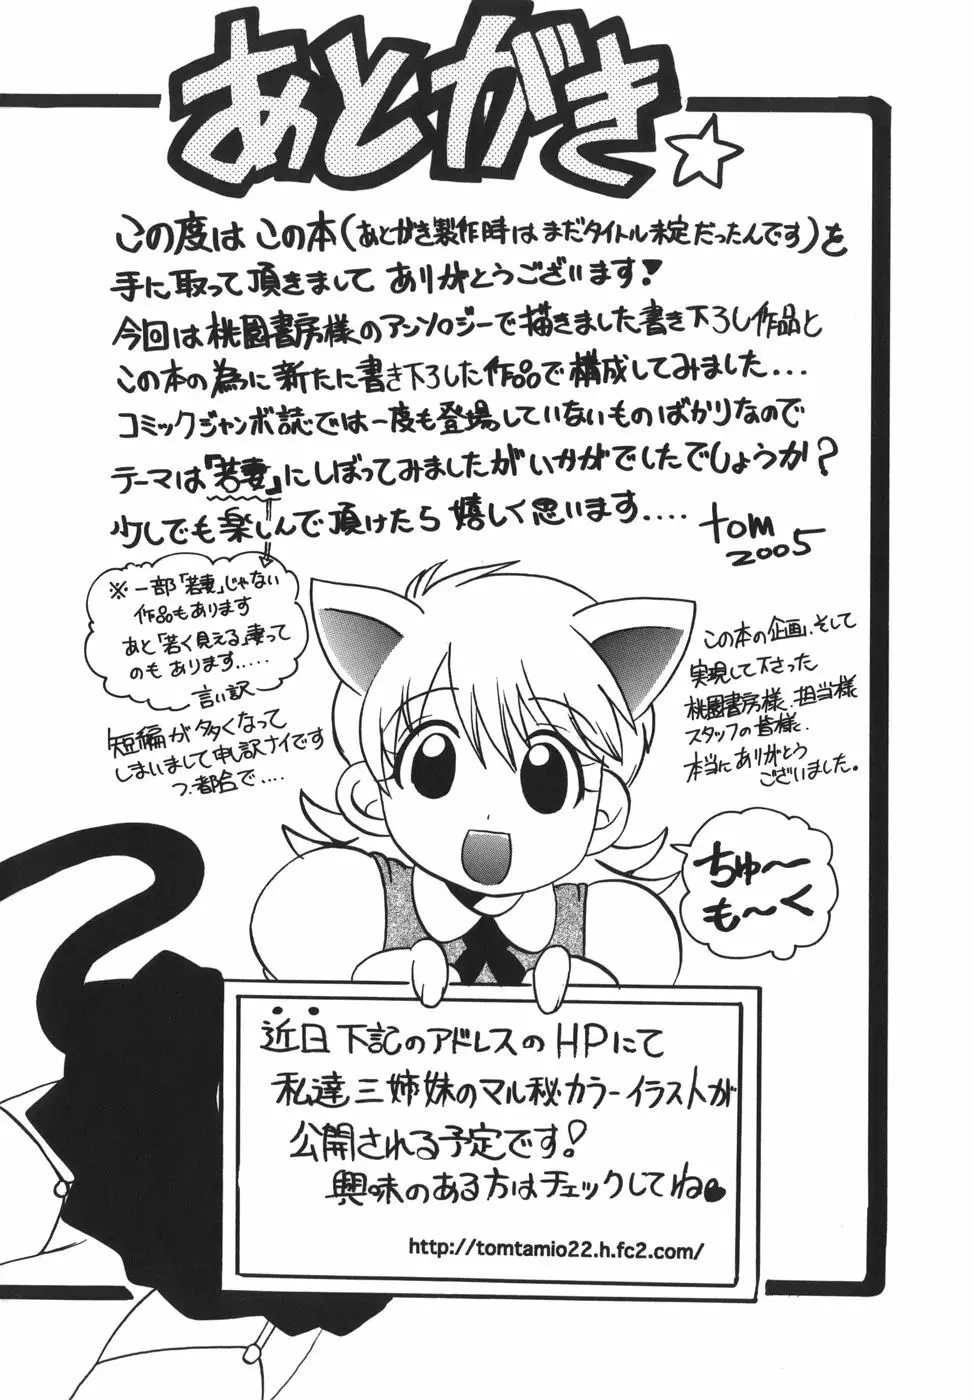 あとがき☆
この度は この本(あとがき製作時はまだタイトル未定だったんです)を
手に取って頂きまして ありがとうございます!
今回は桃園書房様のアンソロジーで描きました書き下ろし作品と
この本の為に新たに書き下ろした作品で構成してみました...
コミックジャンボ誌では一度も登場していないものばかりなので
テーマは「若妻」にしぼってみましたがいかがでしたでしょうか?
少しでも楽しんで頂けたら嬉しく思います....
tom
2005
※一部「若妻」じゃない
作品もあります
あと「若く見える」妻って
のもあります.....
言い訳
短編が多くなって
しまいまして申し訳ナイです
つ、都合で....
この本の企画、そして
実現して下さった
桃園書房様、担当様
スタッフの皆様、
本当にありがとう
ございました。
ちゅ〜
も〜く
近日下記のアドレスのHPにて
私達三姉妹のマル秘カラーイラストが
公開される予定です!
興味のある方はチェックしてね♥
http://tomtamio22.h.fc2.com/